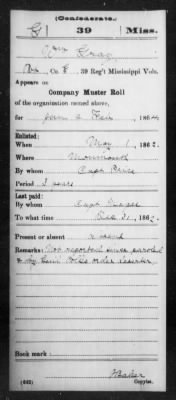 (Confederate.)
G 39 Miss.
Wm Gray
Co. 39 Reg't Mississippi Vols.
Appears on
Company Muster Roll
of the organization named above,
for Jan & Feb, 1864
Enlisted:
When May 1, 1862.
Where Monmouth
By whom Capt
Period 3 years
Last paid:
By whom Capt
To what time Dec 31, 1862.
Present or absent
Remarks: Not reported since paroled
by Genl Polks order deserter
Book mark:
(642) Copyist.